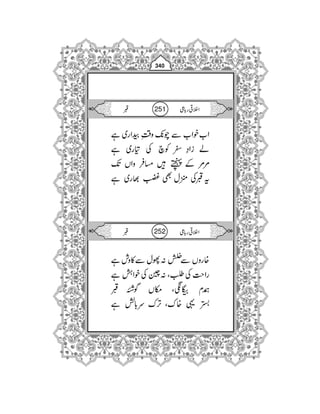 340
اخلاقی رباعی 251 قبر
اب خواب سے چونک وقتِ بیداری ہے
لے زاد سفر کوچ کی تیاری ہے
مر مر کے پہنچتے ہیں مسافر واں تک
یہ قبر کی منزل بھی غضب بھاری ہے
اخلاقی رباعی 252 قبر
خاروں سے خلش نہ پھول سے کاوش ہے
راحت کی طلب، نہ چین کی خواہش ہے
ہمدم بیگانگی، مکاں گوشئہ قبر
بستر یہی خاک، ترک سر بالش ہے